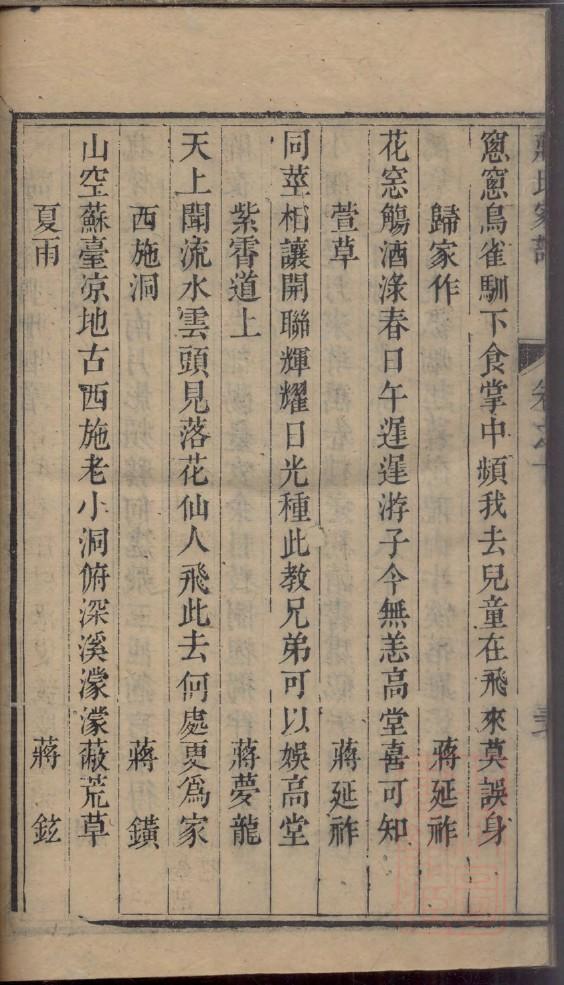 窻窻鳥雀馴下食掌中頻我去兒童在飛來莫誤身
歸家作 蔣延祚
花窓觴酒淥春日午遲遲游子今無恙高堂喜可知
萱草 蔣延祚
同莖相讓開聯輝耀日光種此教兄弟可以娛高堂
紫霄道上 蔣夢龍
天上聞流水雲頭見落花仙人飛此去何處更爲家
西施洞 蔣鐄
山空蘇臺凉地古西施老小洞俯深溪濛濛蔽荒草
夏雨 蔣鉉